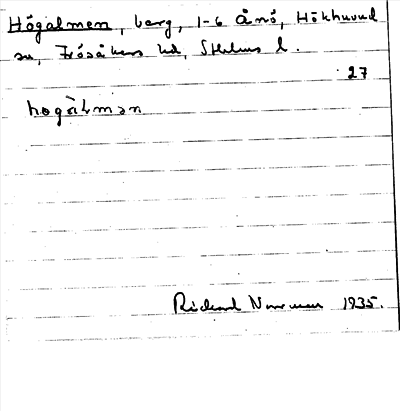 Högalmen, berg, 1-6 Ånö, Hökhuvud
sn, Frösåkers hd, Sthlms l.
27
hogàlmən
Rickard Norrman 1935.